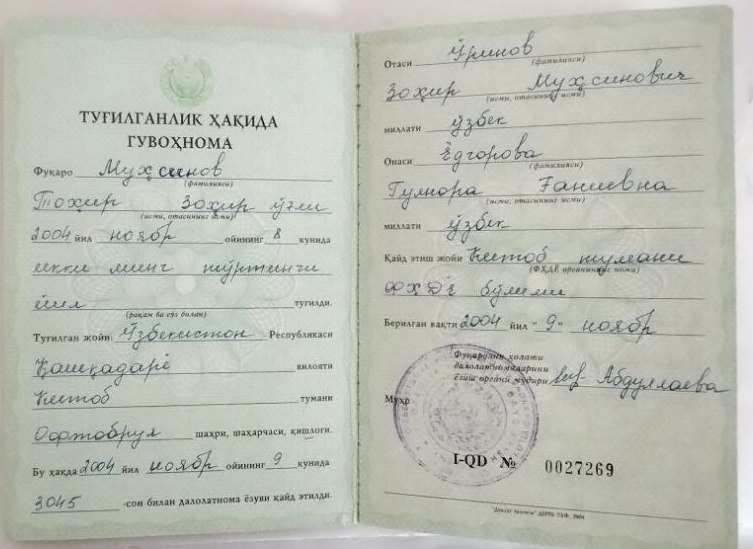 ТУҒИЛГАНЛИК ҲАҚИДА
ГУВОҲНОМА
Фуқаро Муҳсинов
(фамилияси)
Тоҳир Зоҳир ўғли
(исми, отасининг исми)
2004 йил ноябр ойининг 8 кунида
икки минг тўртинчи
йил туғилди.
(рақам ва сўз билан)
Туғилган жойи: Ўзбекистон Республикаси
Қашқадарё вилояти
Китоб тумани
Офтобруя шаҳри, шаҳарчаси, қишлоғи.
Бу ҳақда 2004 йил ноябр ойининг 9 кунида
3045 -сон билан далолатнома ёзуви қайд этилди.
Отаси Ўринов
(фамилияси)
Зоҳир Муҳсинович
(исми, отасининг исми)
миллати ўзбек
Онаси Ёдгорова
(фамилияси)
Гулнора Ғаниевна
(исми, отасининг исми)
миллати ўзбек
Қайд этиш жойи Китоб тумани
(ФҲДЁ органининг номи)
ФҲДЁ бўлими
Берилган вақти 2004 йил -9- ноябр
Фуқаролик ҳолати
далолатномаларини
ёзиш органи мудири Абдуллаева
Муҳр
I-QD № 0027269